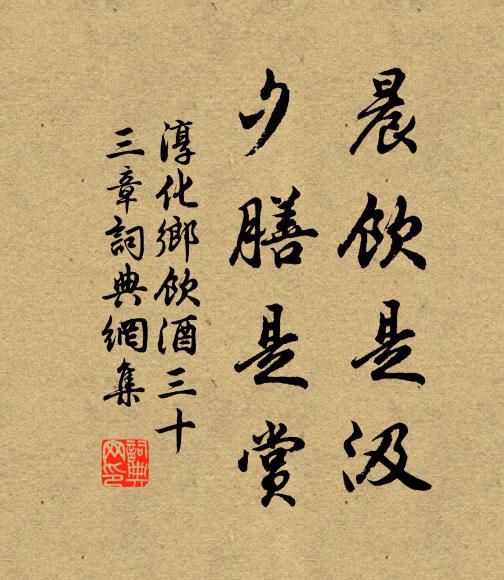 晨飲是汲
夕膳是賞
淳化鄉飲酒三十
三章詞典網集
詞典網印